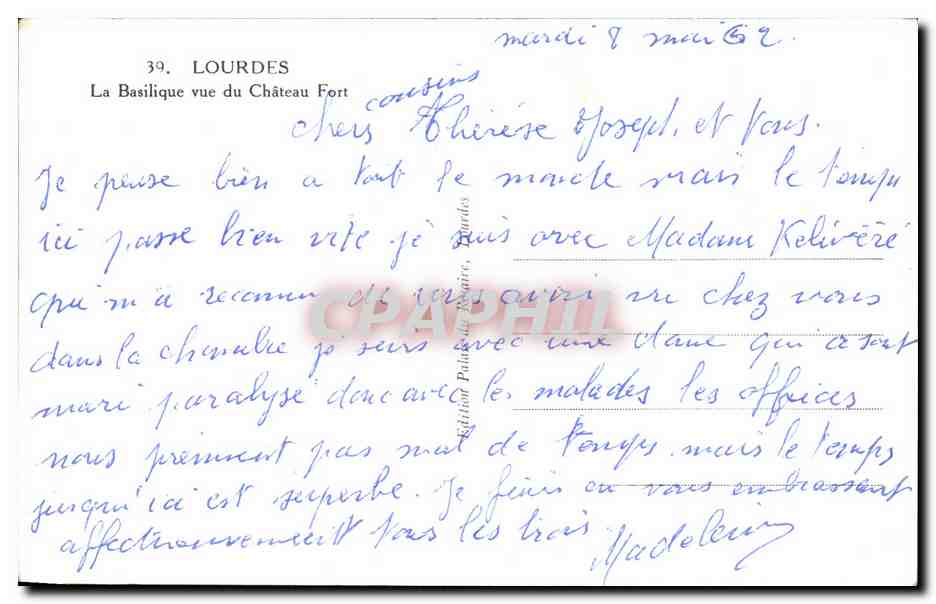 mardi 8 mai 62.
39. LOURDES
La Basilique vue du Château Fort
cousins
Chers Thérèse Joseph, et tous.
Je pense bien a tout le monde mais le temps
ici passe bien vite je suis avec Madame Kelivéré
qui m'a reconnu de vous avoir vu chez vous
dans la chambre je suis avec une dame qui a sont
mari paralysé donc avec les malades les offices
nous prennent pas mal de temps mais le temps
jusqu'ici est superbe. Je finis en vous embrassant
affectueusement tous les trois
Madeleine
Edition Palais du Rosaire, Lourdes
CPAPHIL